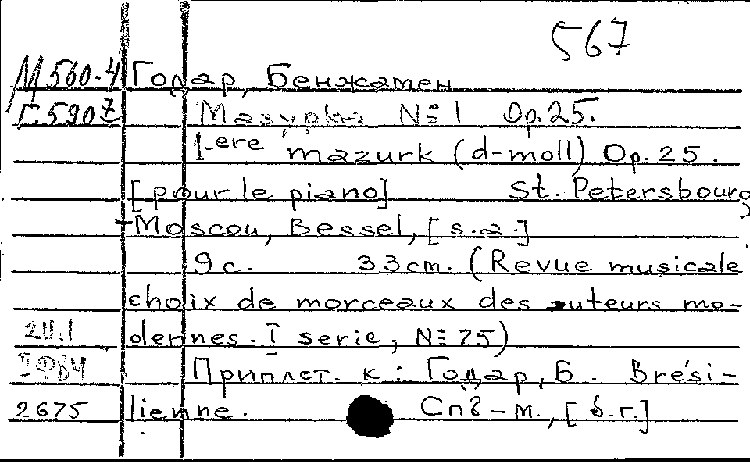 567
М560-4 Годар, Бенжамен
Г.590 Мазурка № 1 Op. 25.
1-ere mazurk (d-moll) Op. 25.
[pour le piano] St. Petersbourg
-Moscou, Bessel, [s.a.]
9 с. 33 cm. (Revue musicale
choix de morceaux des auteurs mo-
dernes. I serie, № 75)
Приплет. к: Годар, Б. Brési-
2675 lienne. Спб-м., [б.г.]